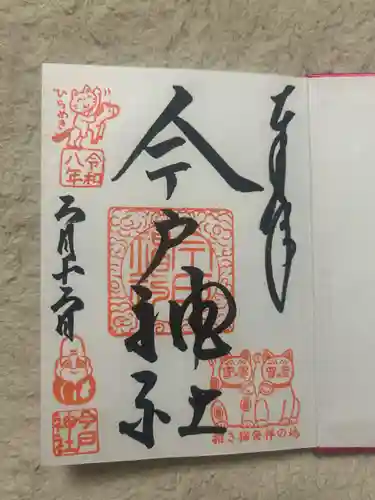 奉拝
今戸神社
招き猫発祥の地
ひらめき
令和
八年
月十
日
今戸
神社